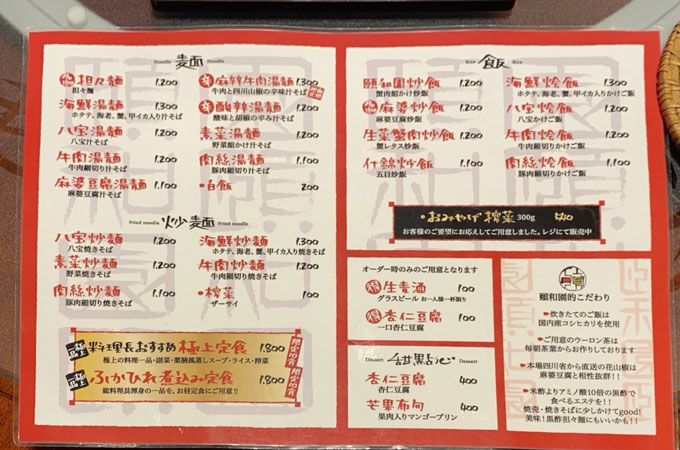 Noodle 麦面 Noodle
担々麺 1.200
担々麺
海鮮湯麺 1.300
ホタテ、海老、蟹、甲イカ入り汁そば
八宝湯麺 1.200
八宝汁そば
牛肉湯麺 1.200
牛肉細切り汁そば
麻婆豆腐湯麺 1.200
麻婆豆腐汁そば
麻辣牛肉湯麺 1.300
牛肉と四川山椒の辛味汁そば
酸辣湯麺 1.200
酸味と胡椒の辛み汁そば
菜菜湯麺 1.200
野菜館かけ汁そば
肉絲湯麺 1.200
豚肉細切り汁そば
・白飯 200
Fried noodle 炒麦面 Fried noodle
八宝炒麺 1.200
八宝焼きそば
素菜炒麺 1.200
野菜焼きそば
肉絲炒麺 1.200
豚肉細切り焼きそば
海鮮炒麺 1.300
ホタテ、海老、蟹、甲イカ入り焼きそば
牛肉炒麺 1.200
牛肉細切り焼きそば
・榨菜 100
ザーサイ
料理長おすすめ 極上定食 1.800 限定10食
極上の料理一品・副菜・薬膳風蒸しスープ・ライス・搾菜
ふかひれ煮込み定食 1.800 限定10食
総料理長渾身の一品を、お昼定食にご用意!!
Rice 飯 Rice
頤和園炒飯 1.200
蟹肉館かけ炒飯
麻婆炒飯 1.200
麻婆豆腐炒飯
生菜蟹肉炒飯 1.200
蟹レタス炒飯
什錦炒飯 1.200
五目炒飯
海鮮烩飯 1.300
ホタテ、海老、蟹、甲イカ入りかけご飯
八宝烩飯 1.200
八宝かけご飯
牛肉烩飯 1.200
牛肉細切りかけご飯
肉絲烩飯 1.200
豚肉細切りかけご飯
・おみやげ 搾菜 300g
お客様のご要望にお応えしてご用意しました。レジにて販売中
オーダー時のみのご用意となります
生麦酒 100
グラスビール お一人様一杯限り
杏仁豆腐 100
一口杏仁豆腐
Dessert 甜果点心 Dessert
杏仁豆腐 400
杏仁豆腐
芒果布甸 400
果肉入りマンゴープリン
頤和園的こだわり
・炊きたてのご飯は
国内産コシヒカリを使用
・ご用意のウーロン茶は
毎朝茶葉からお作りしております
・本場四川省から直送の花山椒は
麻婆豆腐と相性抜群!!
・米酢よりアミノ酸10倍の黒酢で
食べるエステを!!
焼売・焼きそばに少しかけてgood!
美味!黒酢担々麺にもいいかも!!